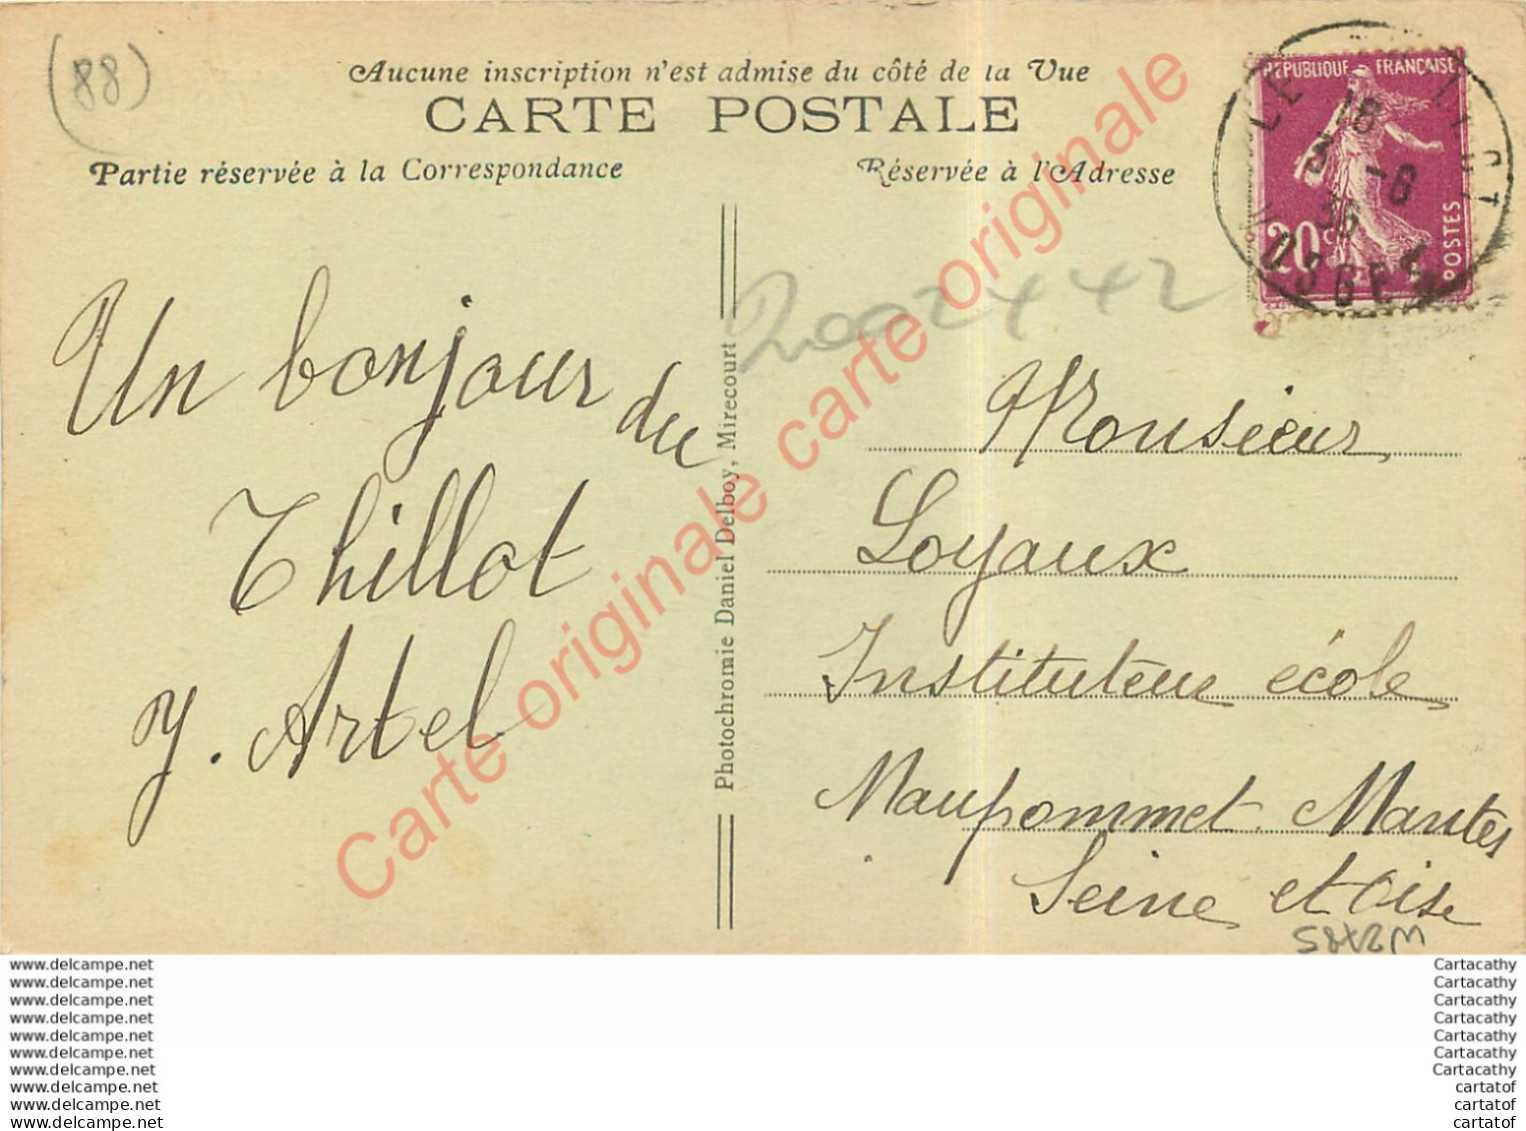 (88)
Aucune inscription n'est admise du côté de la Vue
CARTE POSTALE
Partie réservée à la Correspondance
Réservée à l'Adresse
RÉPUBLIQUE FRANÇAISE
20c
POSTES
LE THILLOT
18
5 -8
36
VOSGES
2002442
Un bonjour du
Thillot
Y. Artel
Photochromie Daniel Delboy, Mirecourt
Monsieur
Loyaux
Instituteur école
Maupommet. Mantes
Seine et Oise
Carte originale carte originale
www.delcampe.net
www.delcampe.net
www.delcampe.net
www.delcampe.net
www.delcampe.net
www.delcampe.net
www.delcampe.net
www.delcampe.net
www.delcampe.net
www.delcampe.net
Cartacathy
Cartacathy
Cartacathy
Cartacathy
Cartacathy
Cartacathy
Cartacathy
cartatof
cartatof
cartatof